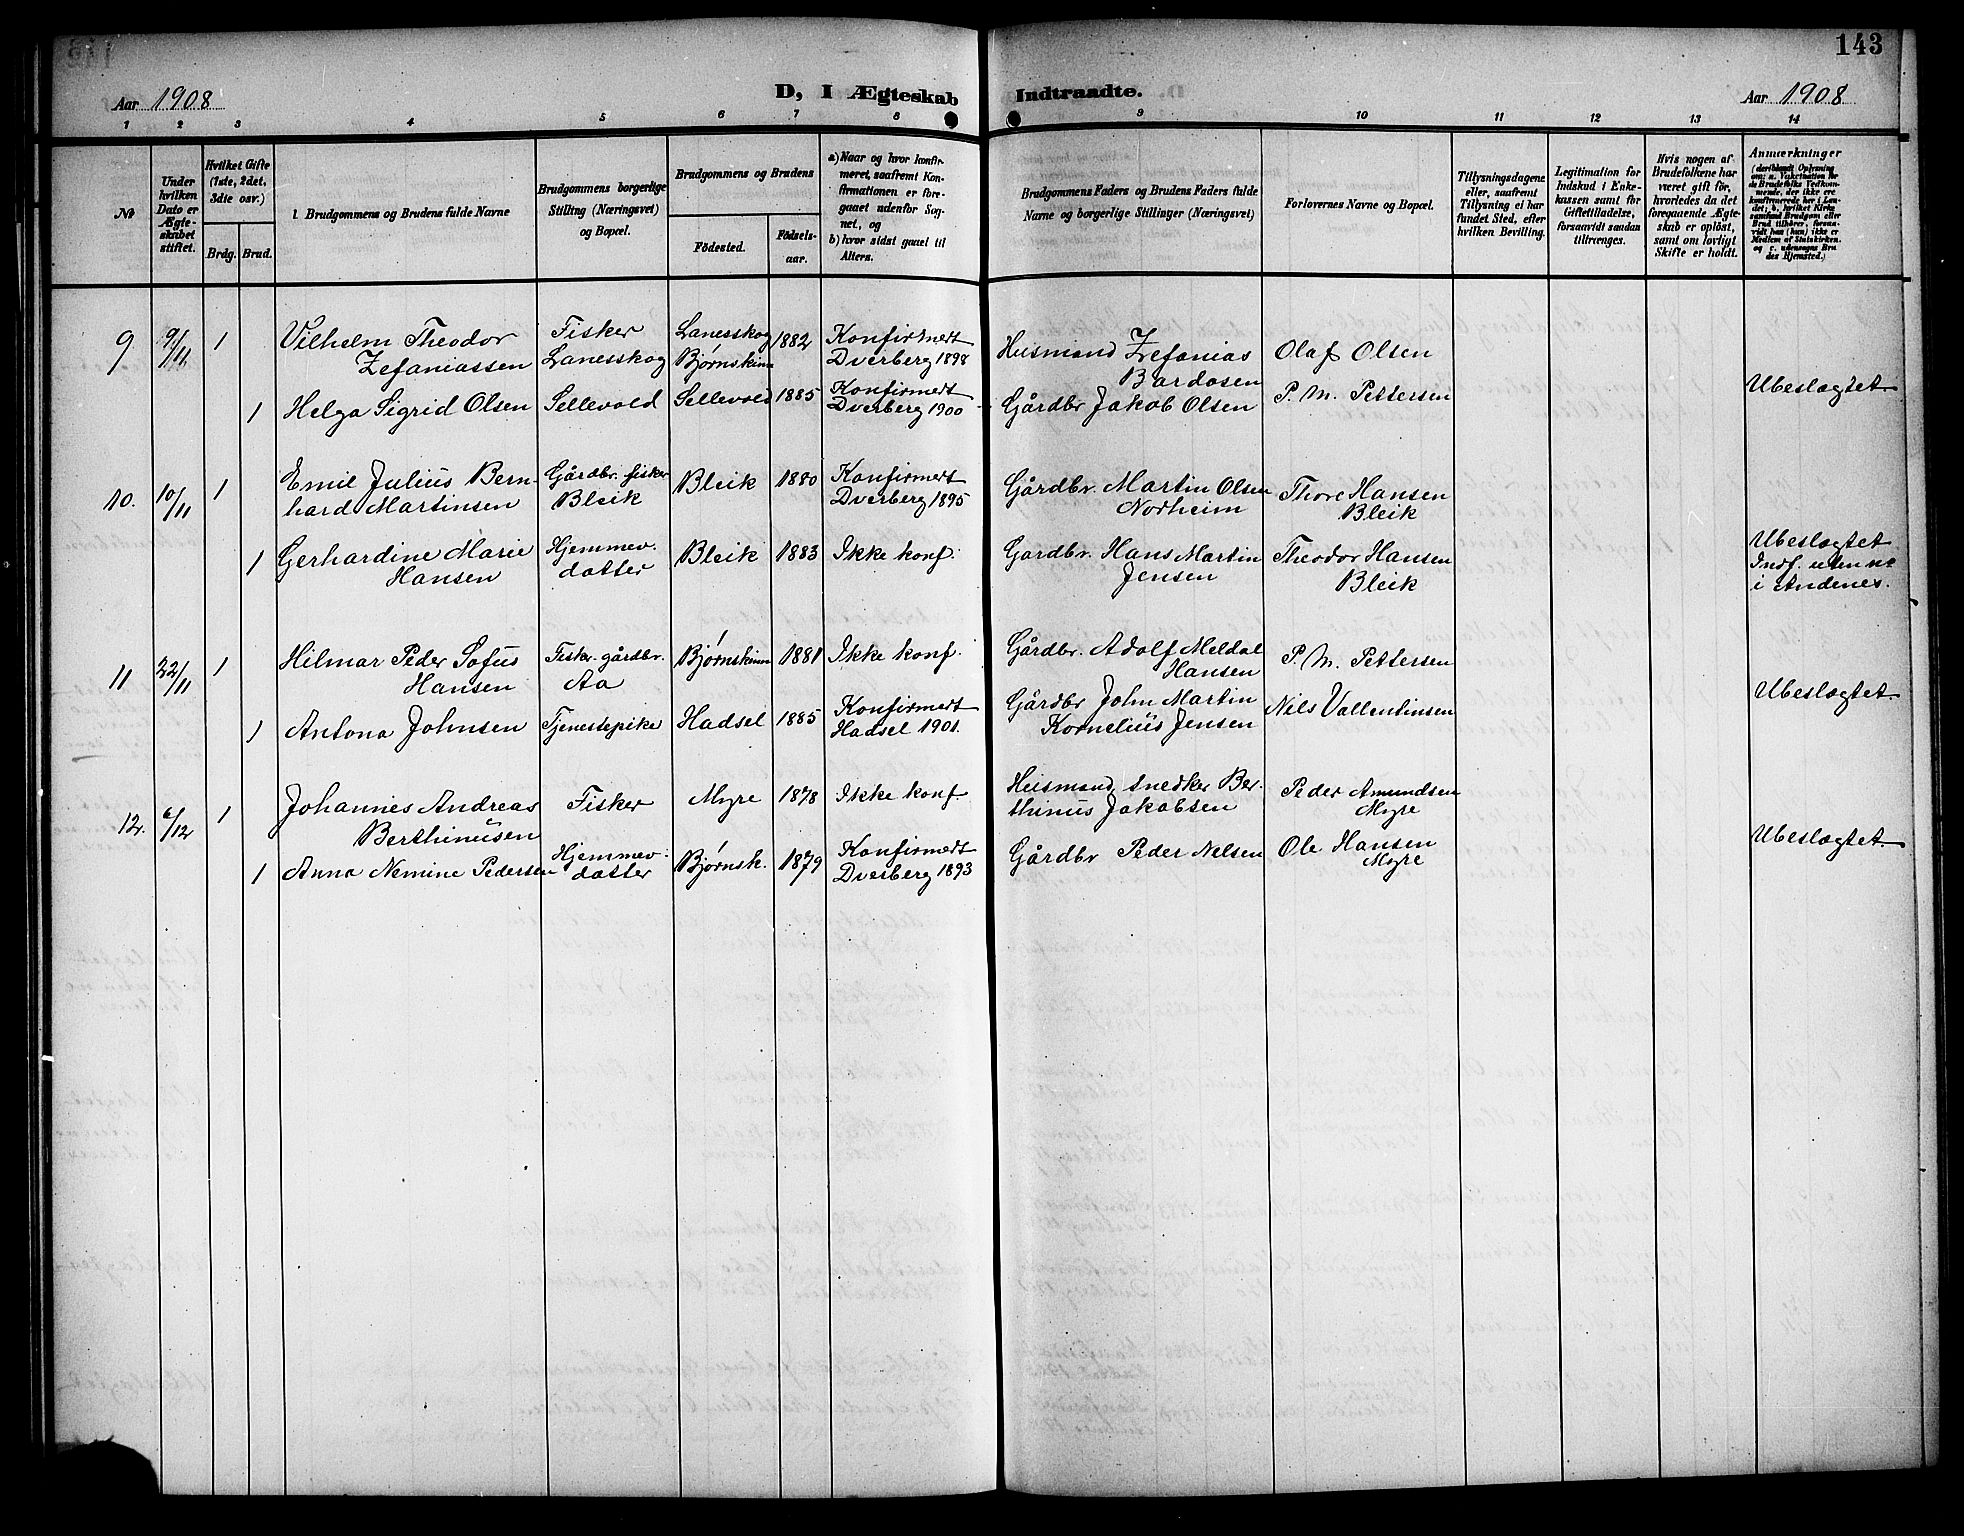 143
Aar 1908
D, I Ægteskab
Indtraadte.
Aar 1908
1 2 3 4 5 6 7 8 9 10 11 12 13 14
№
Under hvilken Dato er Ægteskabet stiftet.
Hvilket Gifte (1ste, 2det, 3die osv.)
Brdg. Brud.
1. Brudgommens og Brudens fulde Navne
Brudgommens borgerlige Stilling (Næringsvet) og Bopæl.
Brudgommens og Brudens
Födested.
Födselsaar.
a) Naar og hvor konfirmeret, saafremt Konfirmationen er foregaaet udenfor Sognet, og
b) hvor sidst gaaet til Alters.
Brudgommens Faders og Brudens Faders fulde Navne og borgerlige Stillinger (Næringsvet)
Forlovernes Navne og Bopæl.
Tillysningsdagene eller, saafremt Tillysning ei har fundet Sted, efter hvilken Bevilling.
Legitimation for Indskud i Enkekassen samt for Giftetilladelse, forsaavidt saadan tiltrænges.
Hvis nogen af Brudefolkene har været gift för, hvorledes da det foregaaende Ægteskab er oplöst, samt om lovligt Skifte er holdt.
Anmærkninger
(deriblandt Oplysning om: a. Vakcination for de Brudefolks Vedkommende, der ikke ere konfirmerede her i Landet; b. hvilket Kirkesamfund Brudgom eller Brud tilhörer, forsaavidt han (hun) ikke er Medlem af Statskirken. og c. udensogns Brudes Hjemsted.)
9 9/11 1 Vilhelm Theodor Fisker Lanesskog 1882 Konfirmert Husmand Zefanias Olaf Olsen
Zefaniassen Lanesskog Bjørnskinn Dverberg 1898 Bardosen
1 Helga Sigrid Olsen Sellevold Sellevold 1885 Konfirmert Gårdbr Jakob Olsen P. M. Pettersen Ubeslægtet
Dverberg 1900
10. 10/11 1 Emil Julius Bern- Gårdbr. fisker Bleik 1880 Konfirmert Gårdbr. Martin Olsen Thore Hansen
hard Martinsen Bleik Dverberg 1895 Norheim Bleik
1 Gerhardine Marie Hjemmev. Bleik 1883 Ikke konf. Gardbr. Hans Martin Theodor Hansen Ubeslægtet
Hansen datter Jensen Bleik Indf. uten nr
i Andenes.
11 22/11 1 Hilmar Peder Sofus Fisker. gårdbr. Bjørnskinn 1881 Ikke konf. Gårdbr. Adolf Meldal P. M. Pettersen
Hansen Aa Hansen
1 Antona Johnsen Tjenestepike Hadsel 1885 Konfirmert Gårdbr John Martin Nils Vallentinsen Ubeslægtet
Hadsel 1901. Kornelius Jensen
12. 6/12 1 Johannes Andreas Fisker Myre 1878 Ikke konf. Husmand, snedker Ber- Peder Amundsen
Berthinusen thinus Jakobsen Myre
1 Anna Nemine Pedersen Hjemmev- Bjørnsk. 1879 Konfirmert Gårdbr Peder Nelsen Ole Hansen Ubeslægtet
datter Dverberg 1893 Myre